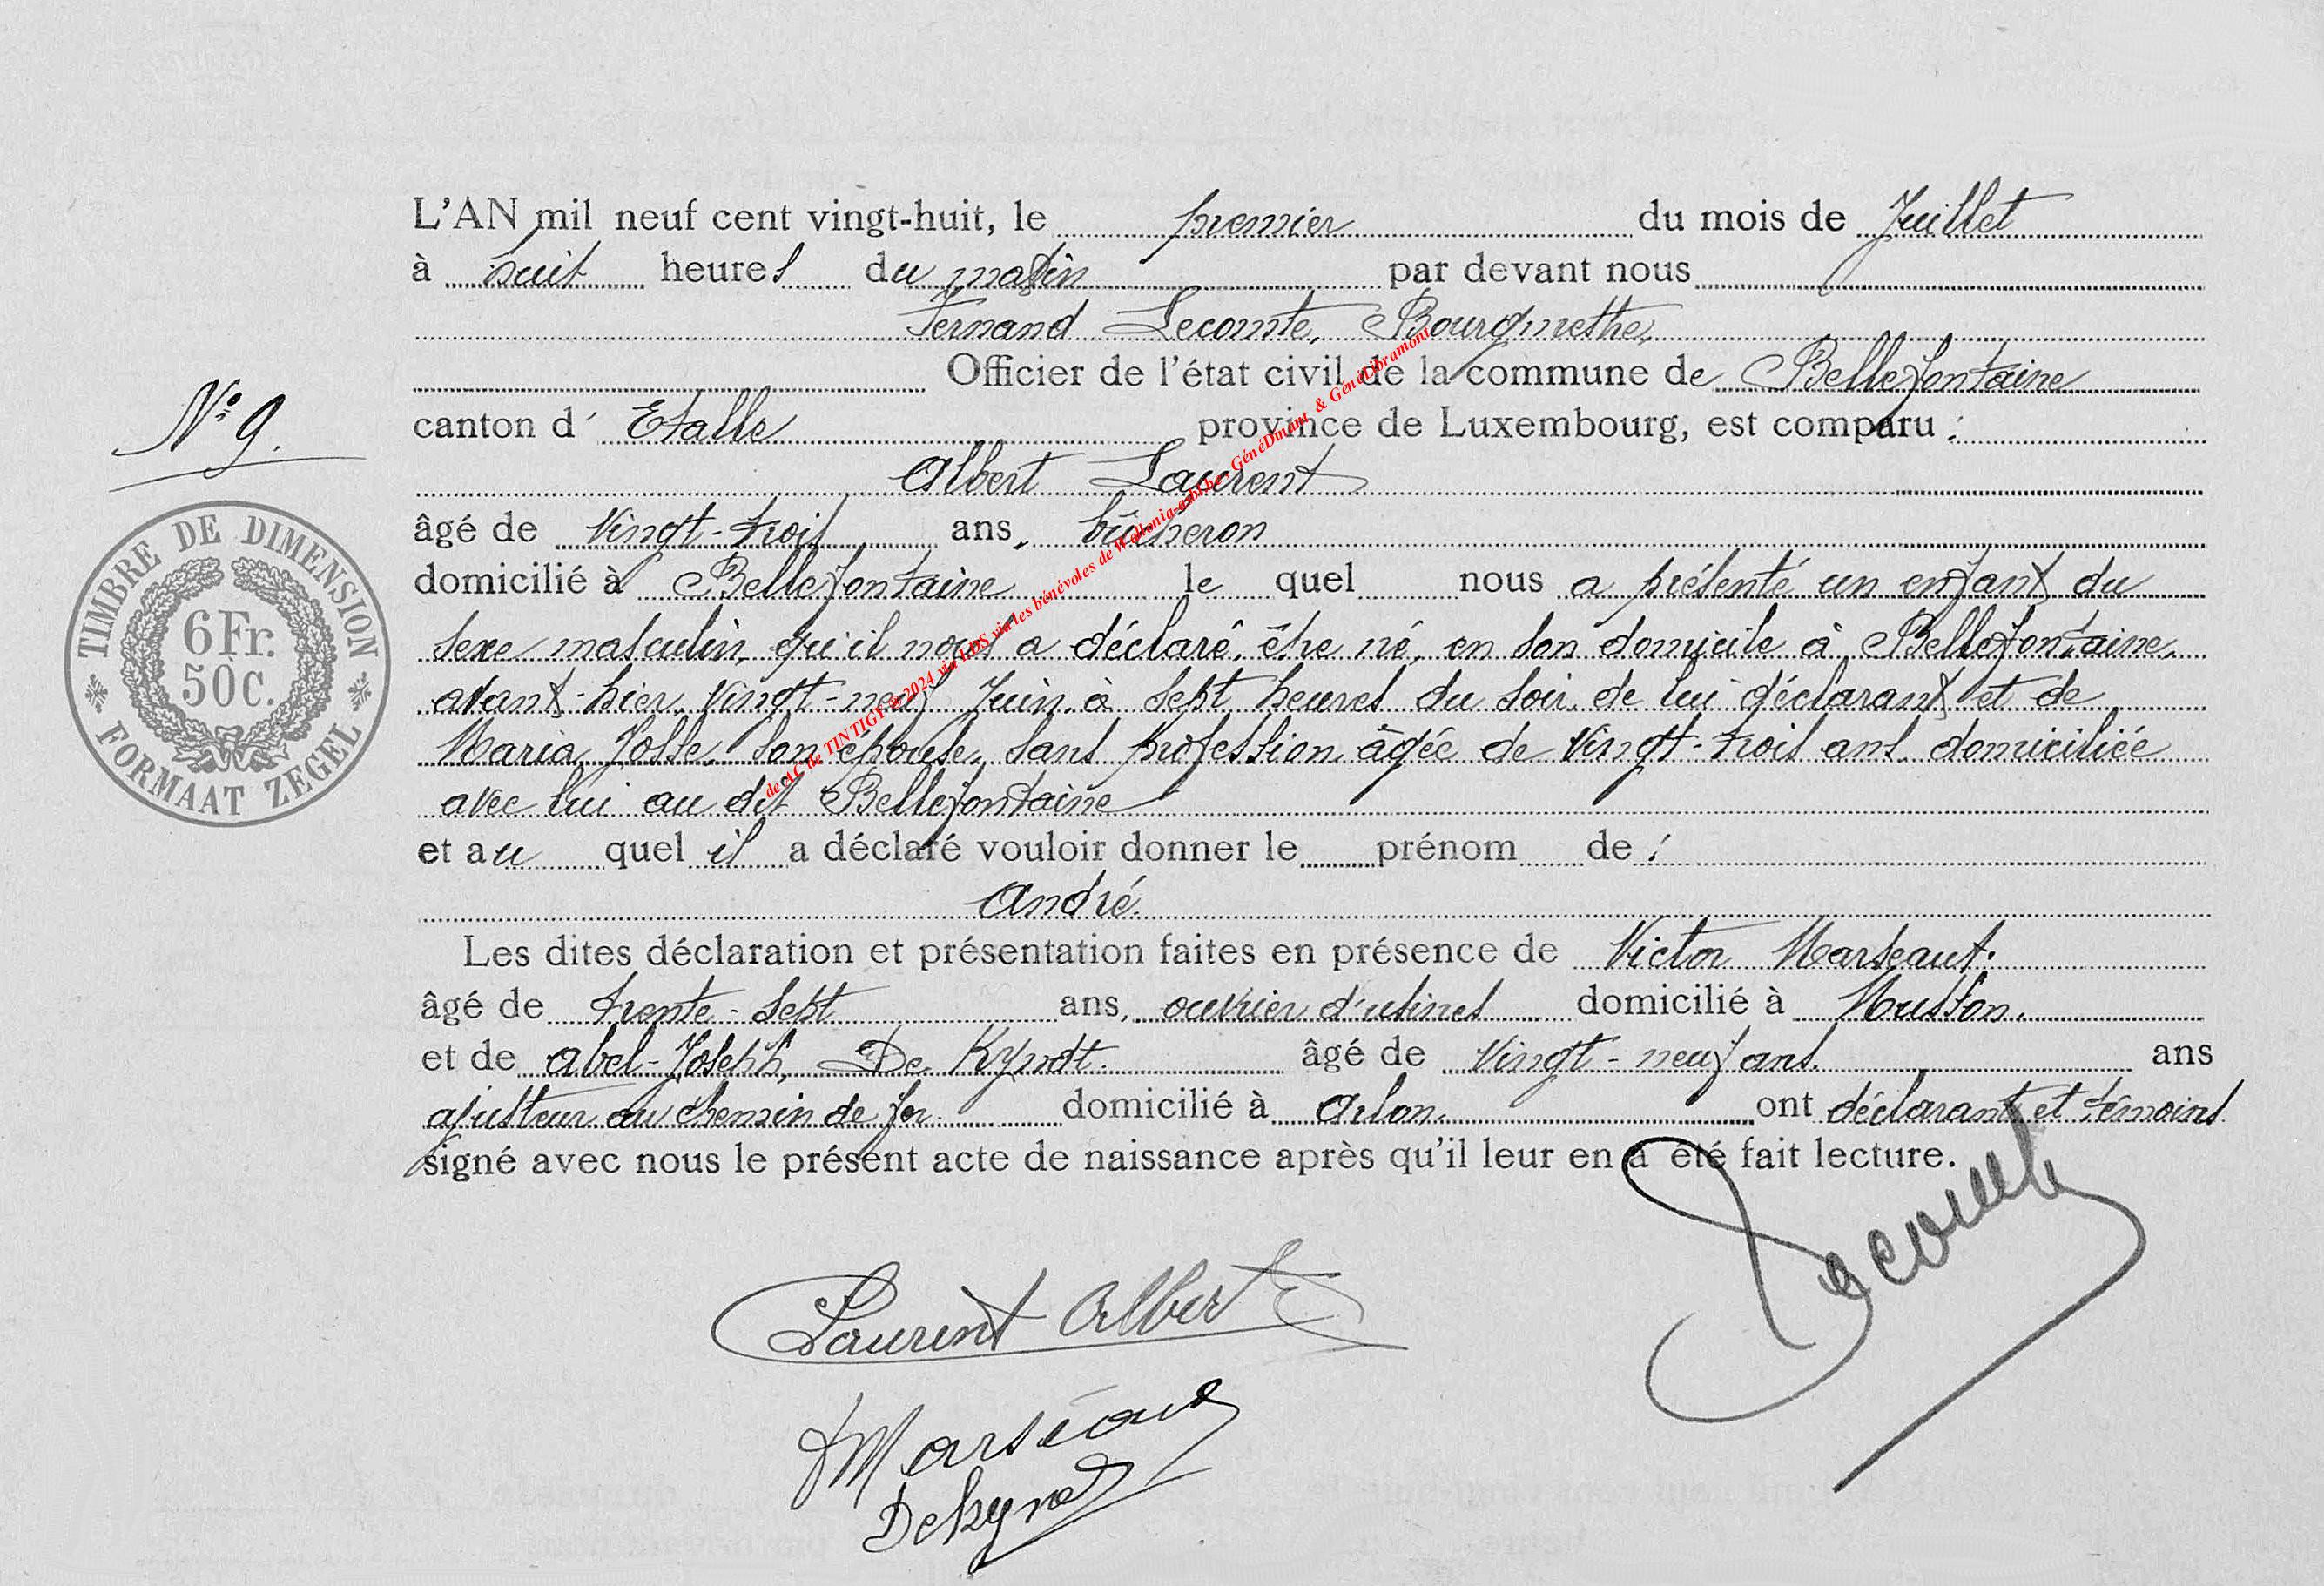 L'AN mil neuf cent vingt-huit, le premier du mois de Juillet
à huit heures du matin par devant nous
Fernand Lecomte, Bourgmestre,
Officier de l'état civil de la commune de Bellefontaine
N° 9.
canton d' Etalle province de Luxembourg, est comparu :
Albert Laurent
âgé de vingt-trois ans, bûcheron
domicilié à Bellefontaine le quel nous a présenté un enfant du
sexe masculin, qu'il nous a déclaré être né, en son domicile à Bellefontaine,
avant-hier, vingt-neuf Juin, à sept heures du soir, de lui déclarant et de
Maria Josse, son épouse, sans profession, âgée de vingt-trois ans, domiciliée
avec lui au dit Bellefontaine
et au quel il a déclaré vouloir donner le prénom de :
André.
Les dites déclaration et présentation faites en présence de Victor Marseaut.
âgé de trente-sept ans, ouvrier d'usines domicilié à Musson.
et de Abel-Joseph, De Kyndt. âgé de vingt-neuf ans. ans
ajusteur au chemin de fer domicilié à Arlon. ont déclarant et témoins
signé avec nous le présent acte de naissance après qu'il leur en a été fait lecture.
TIMBRE DE DIMENSION
6 Fr.
50 C.
FORMAAT ZEGEL
de AC de TINTIGNY © 2024 via LDS via les bénévoles de Wallonia-asbl.be - GénéDinant & GénéLibramont
Lecomte
Laurent Albert
Marseaut
Dekyndt